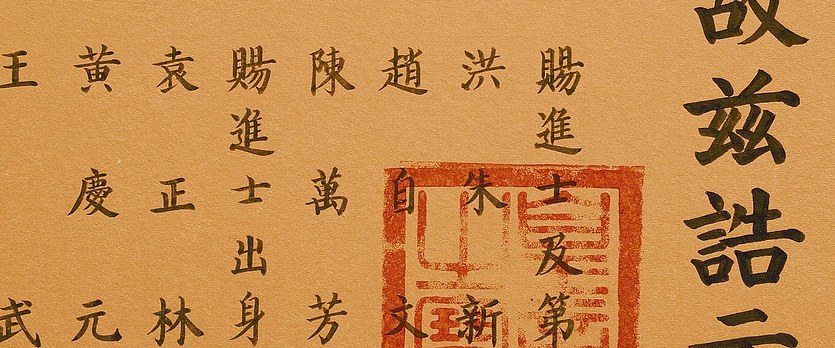 故兹誥示
賜進士及第
洪朱新
趙自文
陳萬芳
賜進士出身
袁正林
黃慶元
王武